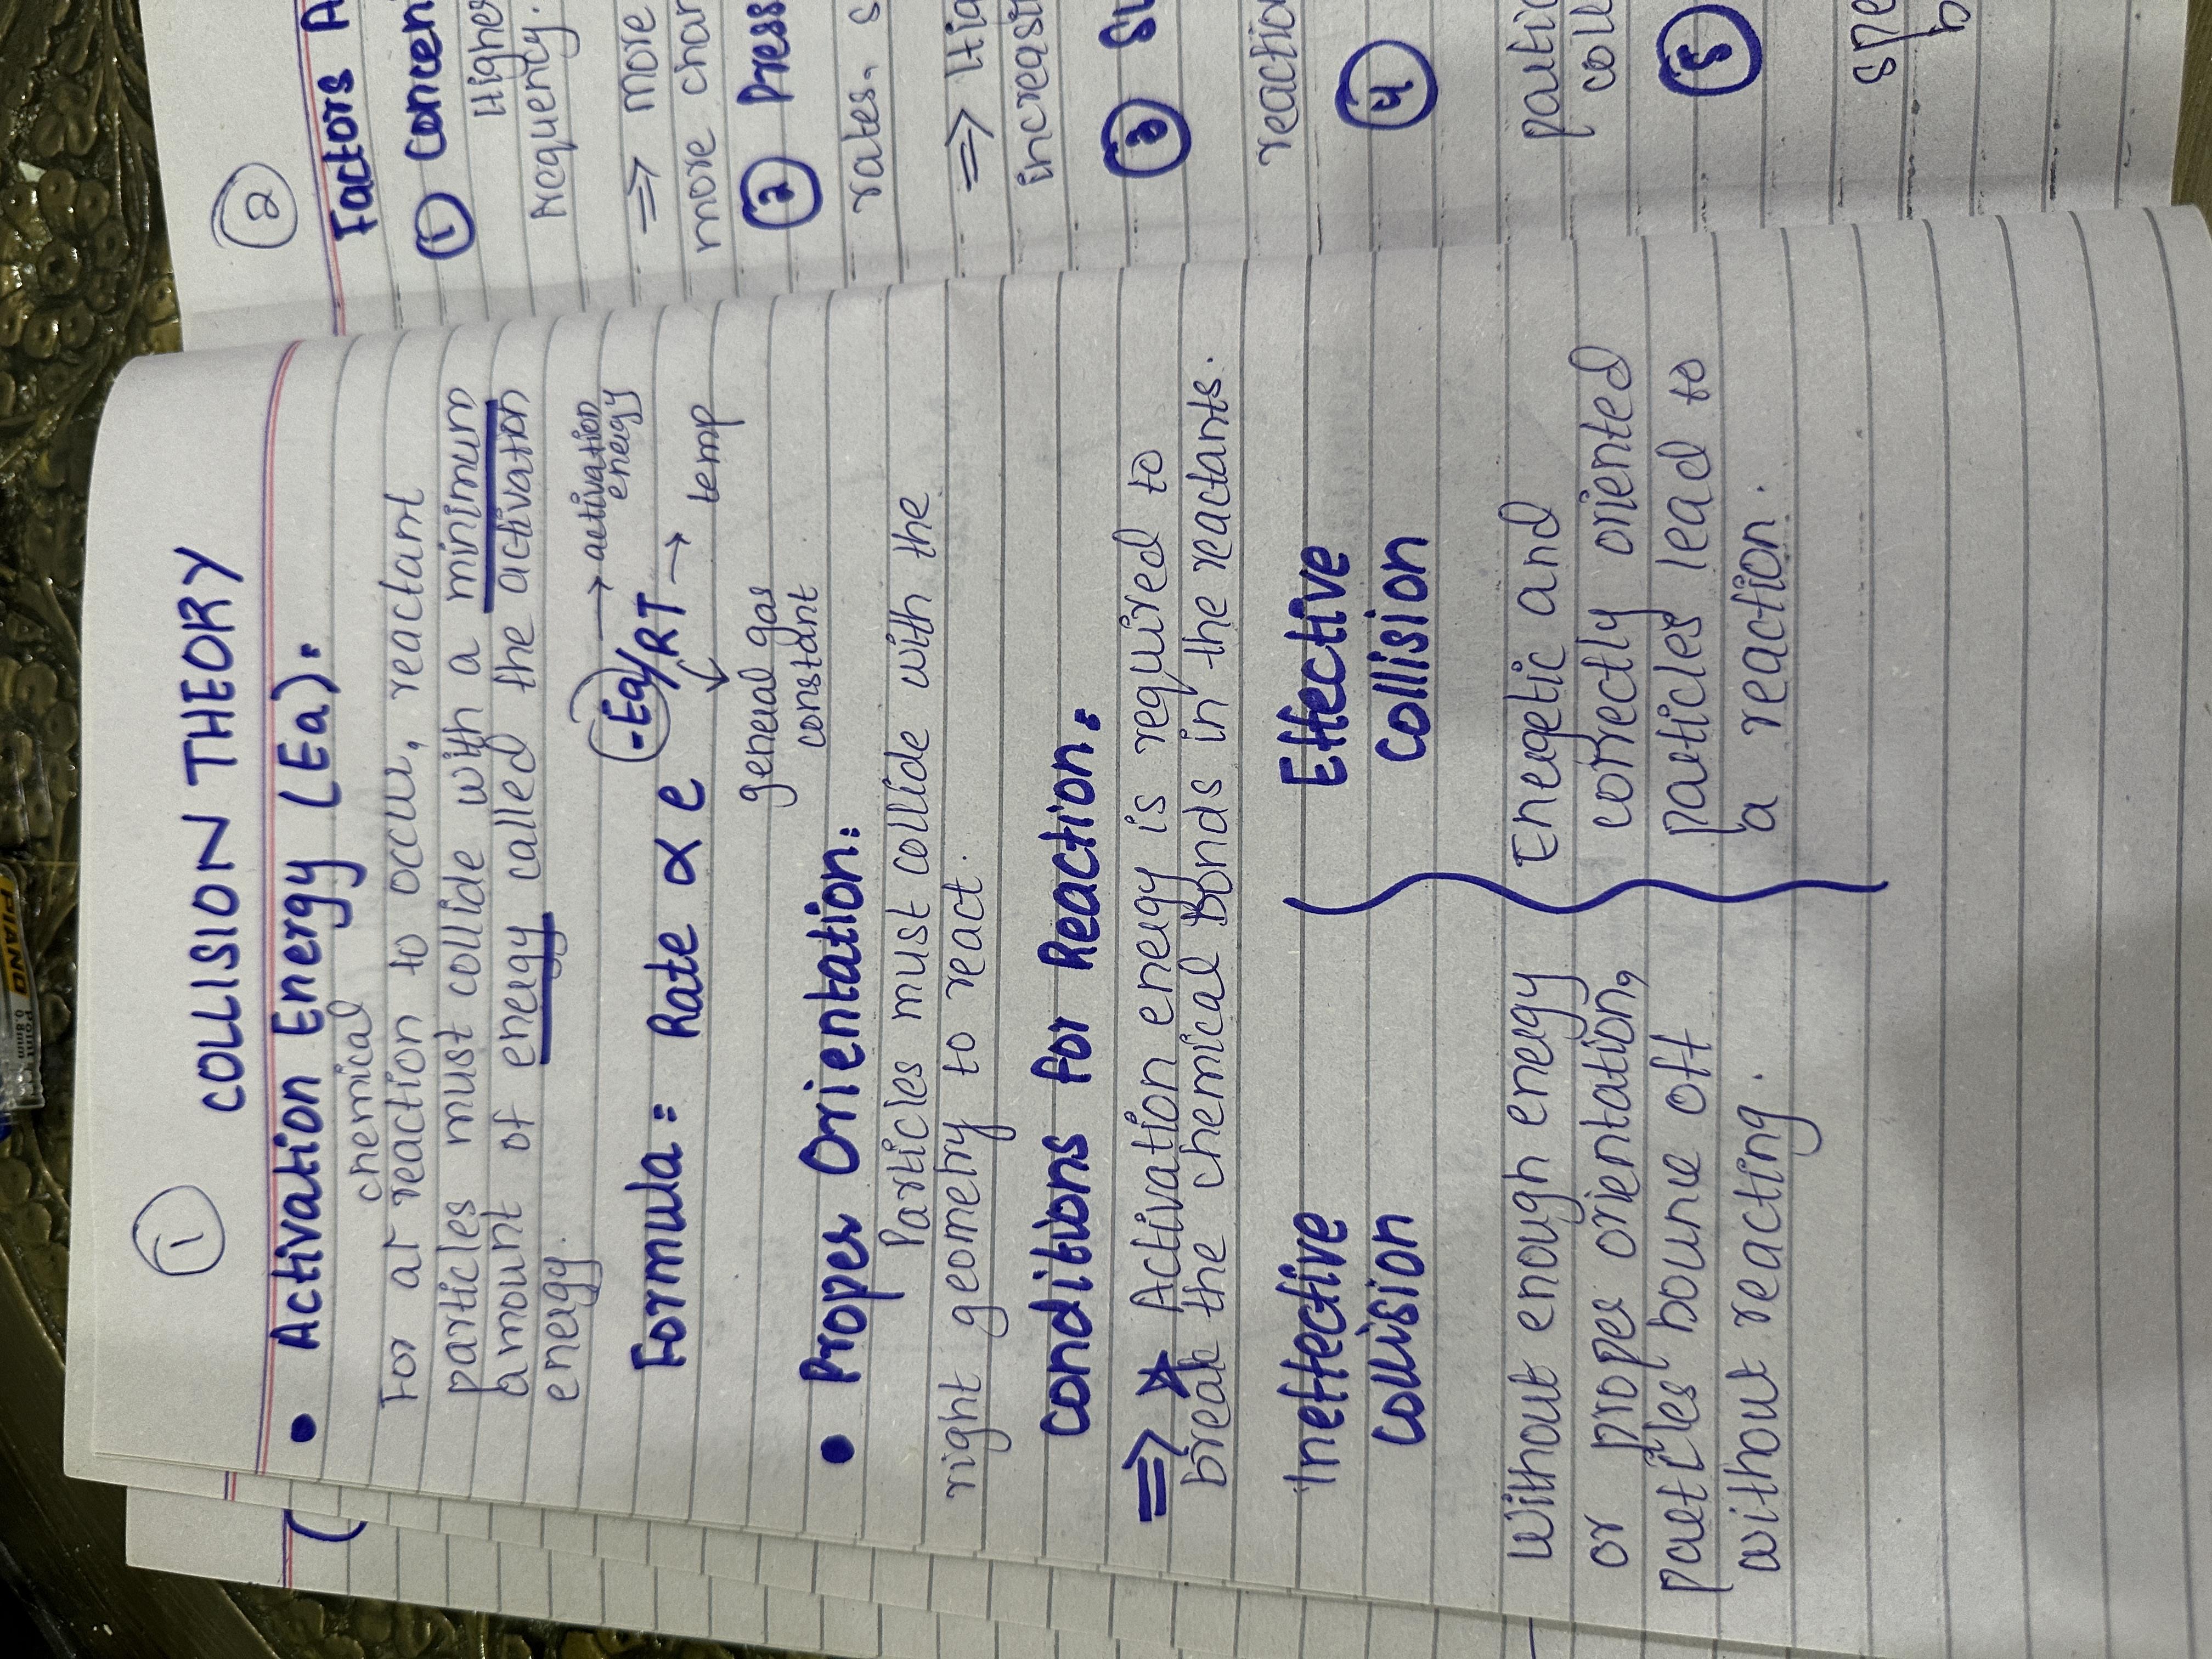 1
COLLISION THEORY
• Activation Energy (Ea):
chemical
For a reaction to occur, reactant
particles must collide with a minimum
amount of energy called the activation
energy.
→ activation
energy
Formula: Rate ∝ e -Ea/RT → temp
general gas
constant
• Proper Orientation:
Particles must collide with the
right geometry to react.
Conditions for Reaction:
⇒ Activation energy is required to
break the chemical Bonds in the reactants.
Ineffective
Collision
without enough energy
or proper orientation,
particles bounce off
without reacting.
Effective
Collision
Energetic and
correctly oriented
particles lead to
a reaction.
2
Factors A
1 Concen
Higher
frequency.
⇒ more
more char
2 Press
rates. s
⇒ Hig
increasi
3 Su
reactio
4
partic
coll
5
spe
PIANO
Point
0.8mm